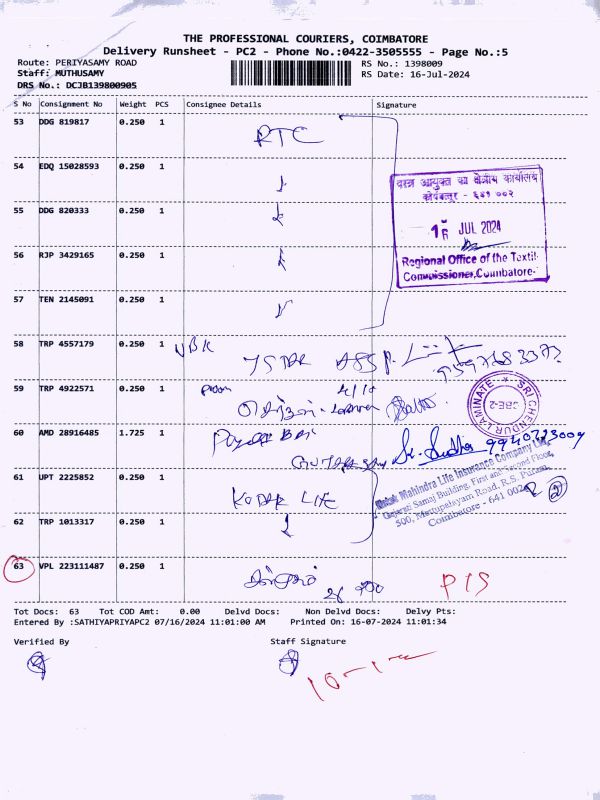 THE PROFESSIONAL COURIERS, COIMBATORE
Delivery Runsheet - PC2 - Phone No.:0422-3505555 - Page No.:5
Route: PERIYASAMY ROAD
RS No.: 1398009
Staff: MUTHUSAMY
RS Date: 16-Jul-2024
DRS No.: DCJB139800905
S No Consignment No Weight PCS Consignee Details Signature
53 DDG 819817 0.250 1
RTC
54 EDQ 15028593 0.250 1
वस्त्र आयुक्त का क्षेत्रीय कार्यालय
कोयंबत्तूर - ६४१ ००२
55 DDG 820333 0.250 1
16 JUL 2024
56 RJP 3429165 0.250 1
Regional Office of the Textile
Commissioner, Coimbatore-
57 TEN 2145091 0.250 1
58 TRP 4557179 0.250 1
59 TRP 4922571 0.250 1
SRI CHENDUR LAMINATE
CBE-2
60 AMD 28916485 1.725 1
9940723009
Kotak Mahindra Life Insurance Company Ltd.
Gujarati Samaj Building, First and Second Floor,
500, Mettupalayam Road, R.S. Puram,
Coimbatore - 641 002
61 UPT 2225852 0.250 1
KOTAK LIFE
62 TRP 1013317 0.250 1
63 VPL 223111487 0.250 1
Tot Docs: 63 Tot COD Amt: 0.00 Delvd Docs: Non Delvd Docs: Delvy Pts:
Entered By :SATHIYAPRIYAPC2 07/16/2024 11:01:00 AM Printed On: 16-07-2024 11:01:34
Verified By Staff Signature